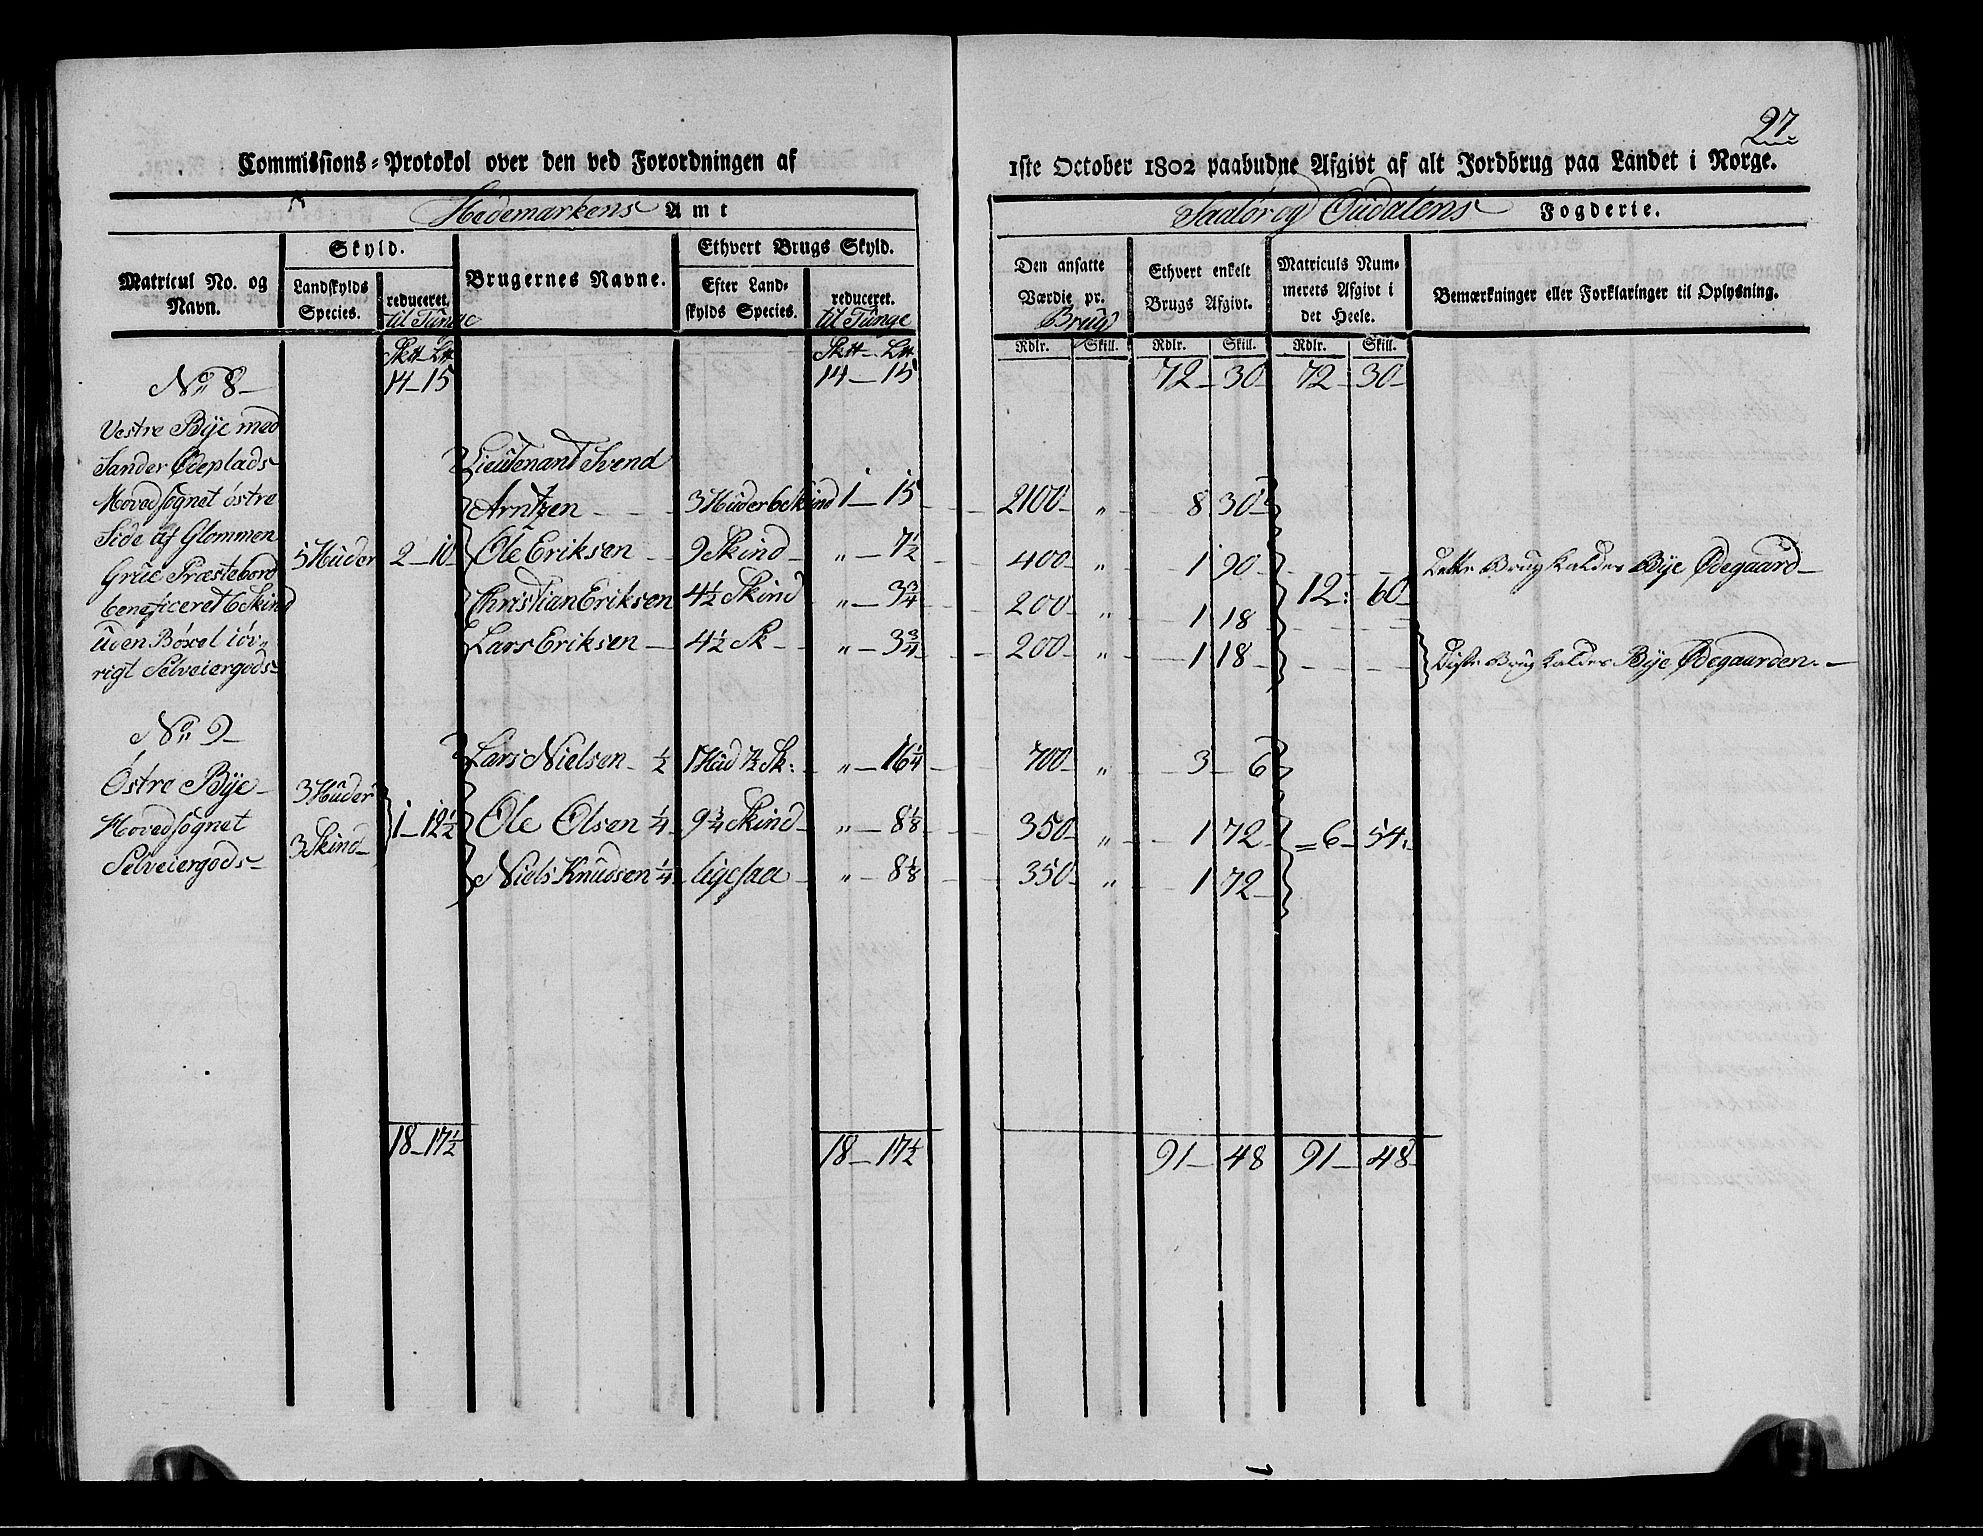 27
Commissions-Protokol over den ved Forordningen af 1ste October 1802 paabudne Afgivt af alt Jordbrug paa Landet i Norge.
Hedemarkens Amt
Soloer og Oudalens Fogderie.
Matricul No. og Navn.
Skyld.
Landskylds Species.
reduceret. til Tunge
Brugernes Navne.
Ethvert Brugs Skyld.
Efter Landskylds Species.
reduceret. til Tunge
Den ansatte Værdie pr. Brug
Ethvert enkelt Brugs Afgivt.
Matriculs Nummerets Afgivt i det Heele.
Bemærkninger eller Forklaringer til Oplysning.
Rdlr. Skill. Rdlr. Skill. Rdlr. Skill.
14 – 15 14 – 15 72 – 30 72 – 30
No 8
Vestre Bÿe med
Sander Ødeplads
Hovedsognet östre
Side af Glommen
Grue Præstebord
beneficeret 6 Skind
uden Böxel iöv-
rigt Selveiergods
5 Huder 2 – 10
Lieutenant Svend
Arntzen 3 Huder 6 Skind 1 – 15 2100 " 8 30
Ole Eriksen 9 Skind " – 7½ 400 " 1 90 Dette Brug kaldes Bÿe Ødegaard
Christian Eriksen 4½ Skind " – 3¾ 200 " 1 18
12 : 60
Lars Eriksen 4½ Sk " – 3¾ 200 " 1 18 Disse Brug kaldes Bÿe Ødegaarden
No 9
Östre Bÿe
Hovedsognet
Selveiergods
3 Huder
3 Skind
1 – 12½
Lars Nielsen ½ 1 Hud 7½ Sk: " – 16¼ 700 " 3 – 6
Ole Olsen ¼ 9¾ Skind " – 8⅛ 350 " 1 72 6 – 54
Niels Knudsen ¼ ligesaa " – 8⅛ 350 " 1 72
18 – 17½ 18 – 17½ 91 – 48 91 – 48